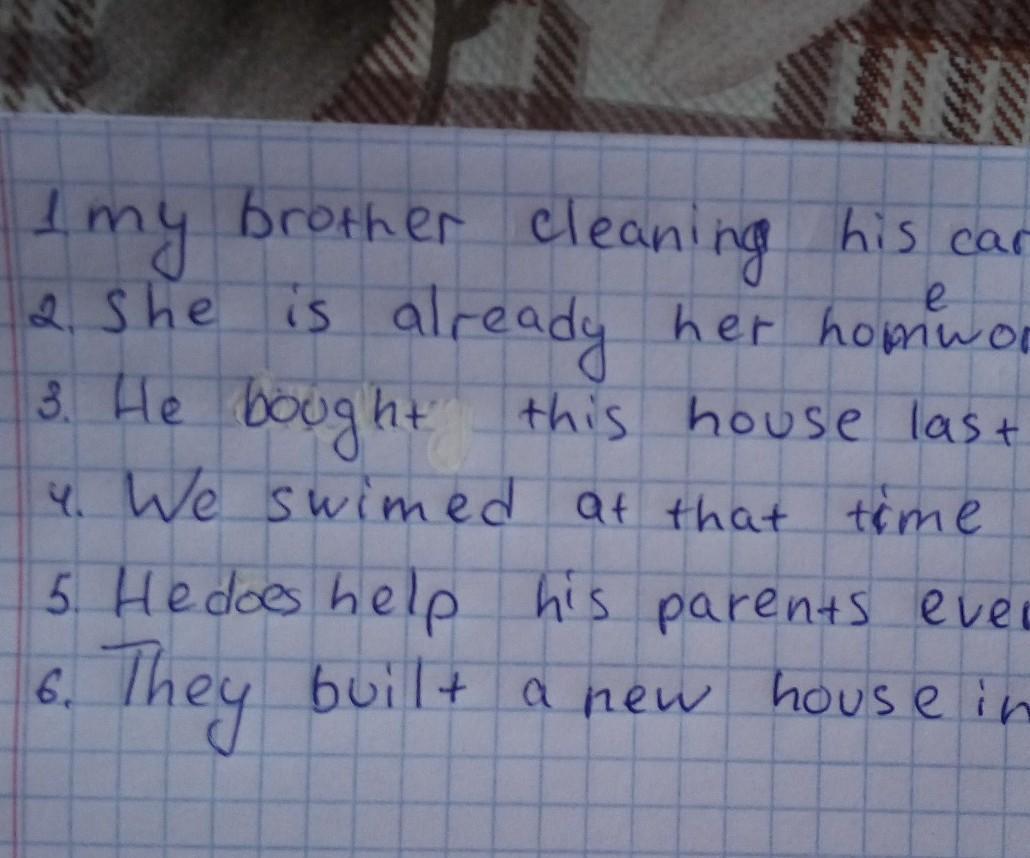 1 my brother cleaning his car
2. She is already her homewo
3. He bought this house last
4. We swimed at that time
5. He does help his parents ever
6. They built a new house in